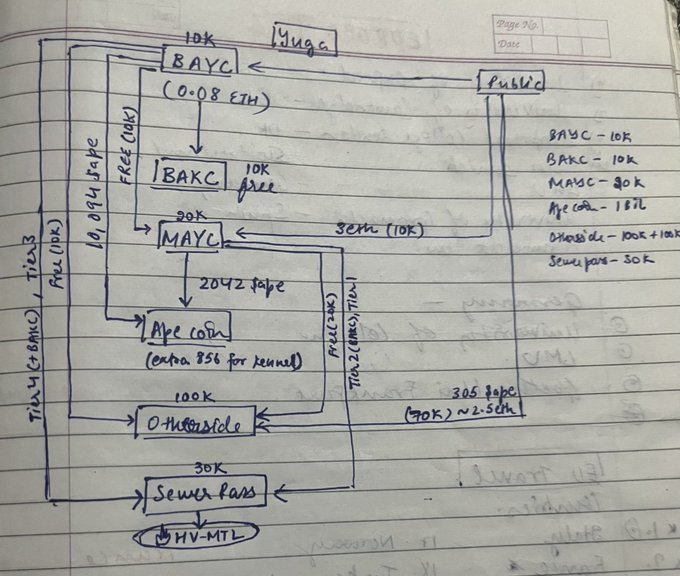 Page No.
Date
Yuga
10K
BAYC
(0.08 ETH)
Public
BAKC
10K
free
20K
MAYC
3eth (10K)
2042 $ape
Ape coin
(extra 856 for kennel)
100K
Otherside
305 $ape
(70K) ~2.5eth
30K
Sewer Pass
HV-MTL
Tier4 (+BAKC), Tier3
Free (10K)
10,094 $ape
FREE (10K)
Free (20K)
Tier2 (BAKC), Tier1
BAYC - 10K
BAKC - 10K
MAYC - 20K
Ape coin - 1 Bil
Otherside - 100K + 100K
Sewer pass - 30K
Germany -
University of
EU Travel
Italy
Norway